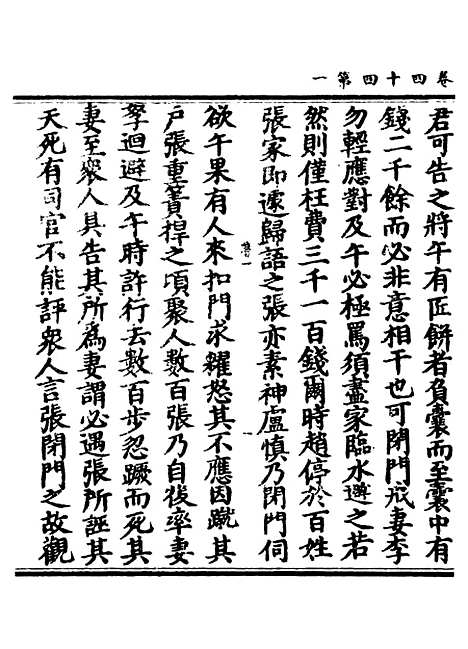 卷四十四第一
君可告之將午有匠餅者負囊而至囊中有
錢二千餘而必非意相干也可閉門戒妻李
勿輕應對及午必極罵須盡家臨水避之若
然則僅枉費三千一百錢爾時趙停於百姓
張家即遽歸語之張亦素神盧慎乃閉門伺
欲午果有人來扣門求糴怒其不應因蹴其
戶張重簣捍之頃聚人數百張乃自後率妻
孥迴避及午時許行去數百步忽蹶而死其
妻至衆人具告其所為妻謂必遇張所誣其
天死有司官不能評衆人言張閉門之故觀